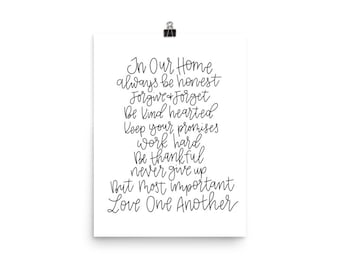 In Our Home
always be honest
Forgive & Forget
Be Kind hearted
Keep your promises
work hard
Be thankful
never give up
But Most important
Love One Another